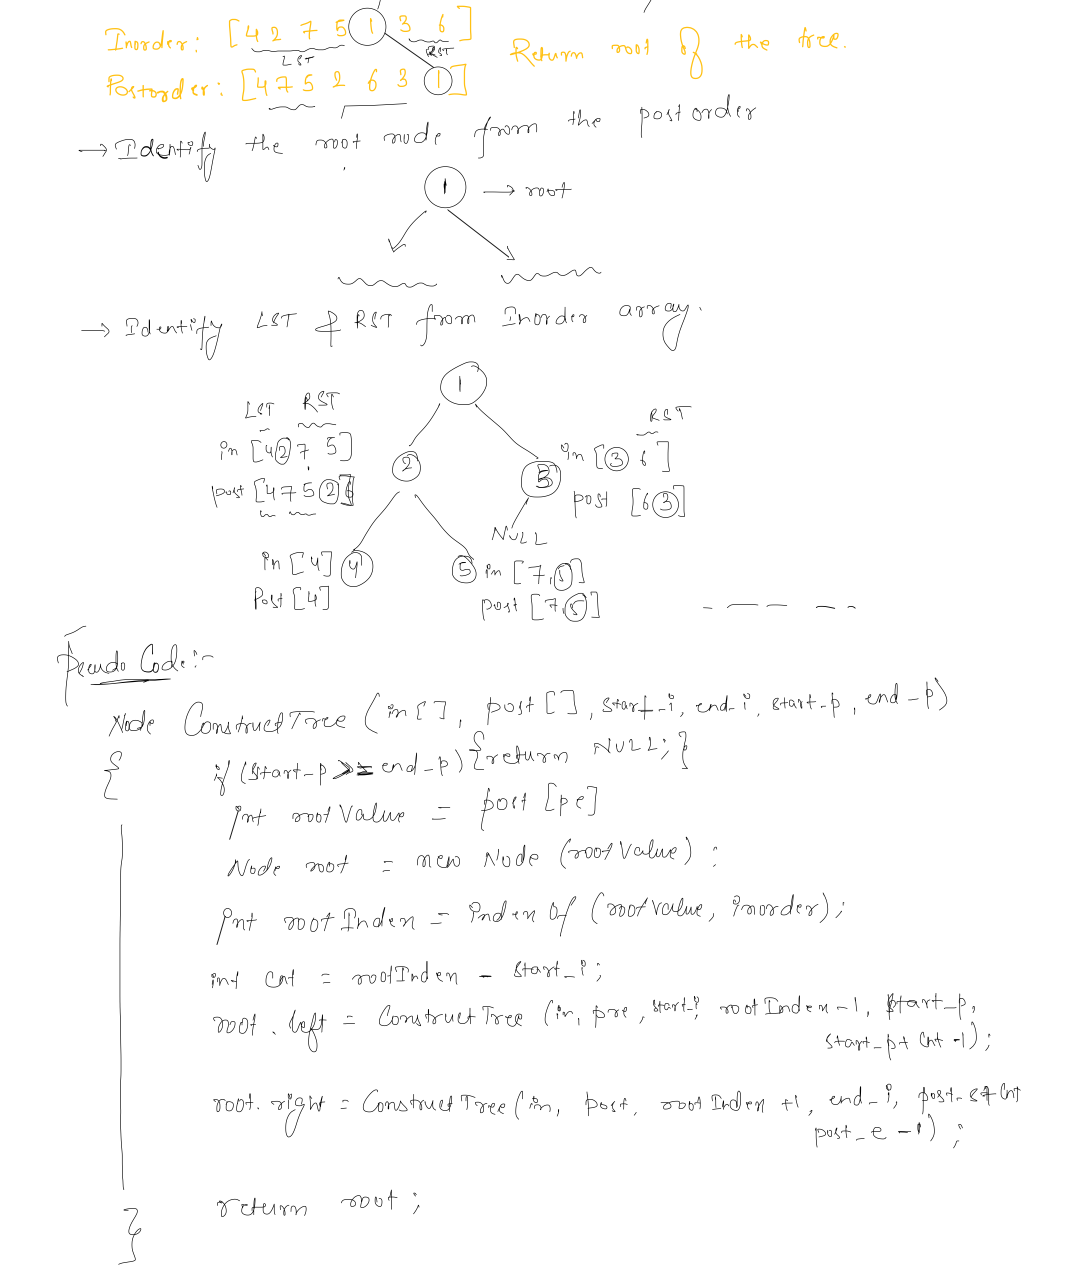 Inorder: [4 2 7 5 1 3 6] Return root of the tree.
LST RST
Postorder: [4 7 5 2 6 3 1]
→ Identify the root node from the postorder
1 → root
→ Identify LST & RST from Inorder array.
1
LST RST
RST
in [4 2 7 5] 2 3 in [3 6]
post [4 7 5 2] post [6 3]
NULL
in [4] 4 5 in [7,5]
Post [4] post [7,5]
Pseudo Code:-
Node ConstructTree (in[], post[], start_i, end_i, start_p, end_p)
{ if (start_p >= end_p) {return NULL;}
int rootValue = post [pe]
Node root = new Node (rootValue);
int rootIndex = index Of (rootvalue, inorder);
int cnt = rootIndex - start_i;
root.left = ConstructTree (in, pre, start_i, rootIndex-1, start_p,
start_p+cnt-1);
root.right = ConstructTree (in, post, rootIndex +1, end_i, post_s+cnt
post_e -1);
return root;
}